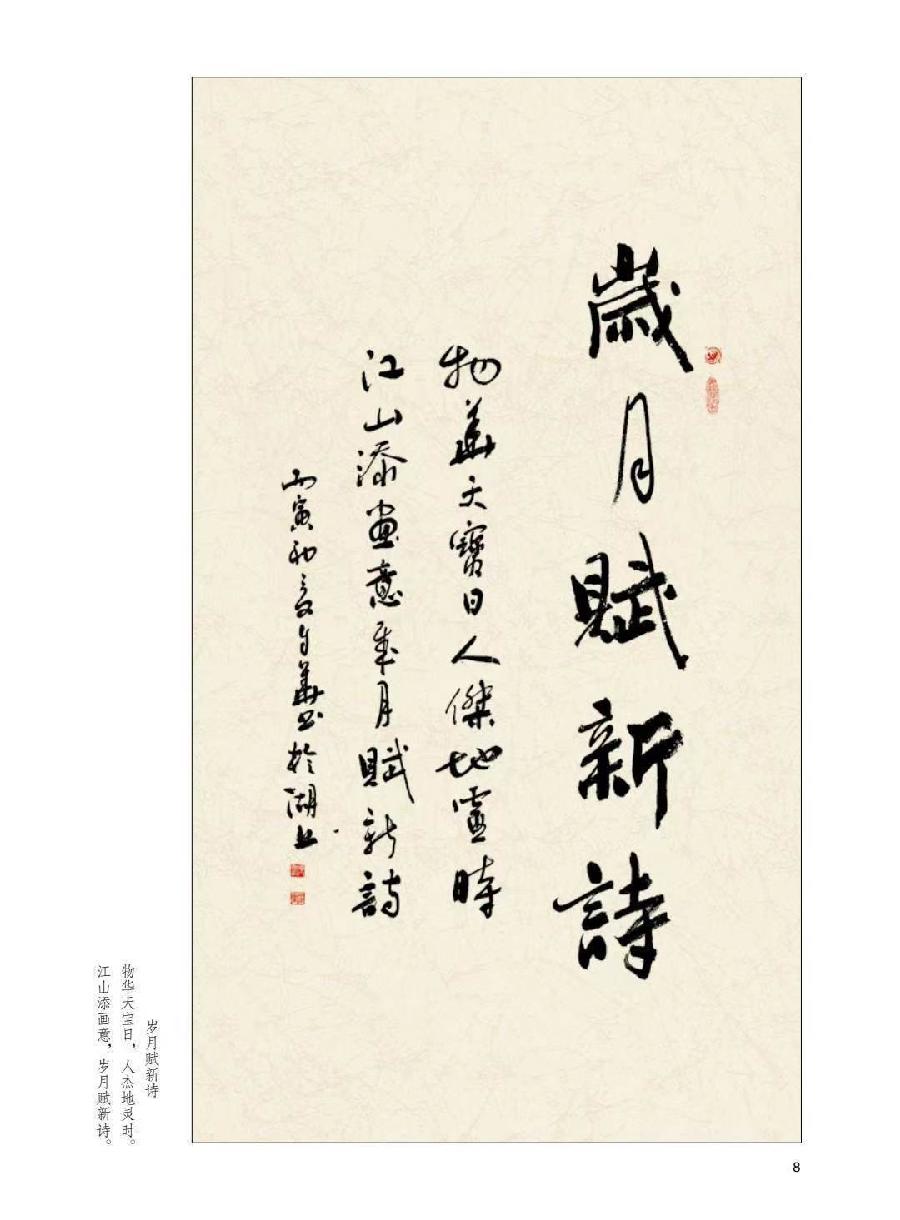 歲月賦新詩
物華天寶日人傑地靈時
江山添畫意歲月賦新詩
丙寅初夏自華書於湖上
岁月赋新诗
物华天宝日，人杰地灵时。
江山添画意，岁月赋新诗。
8